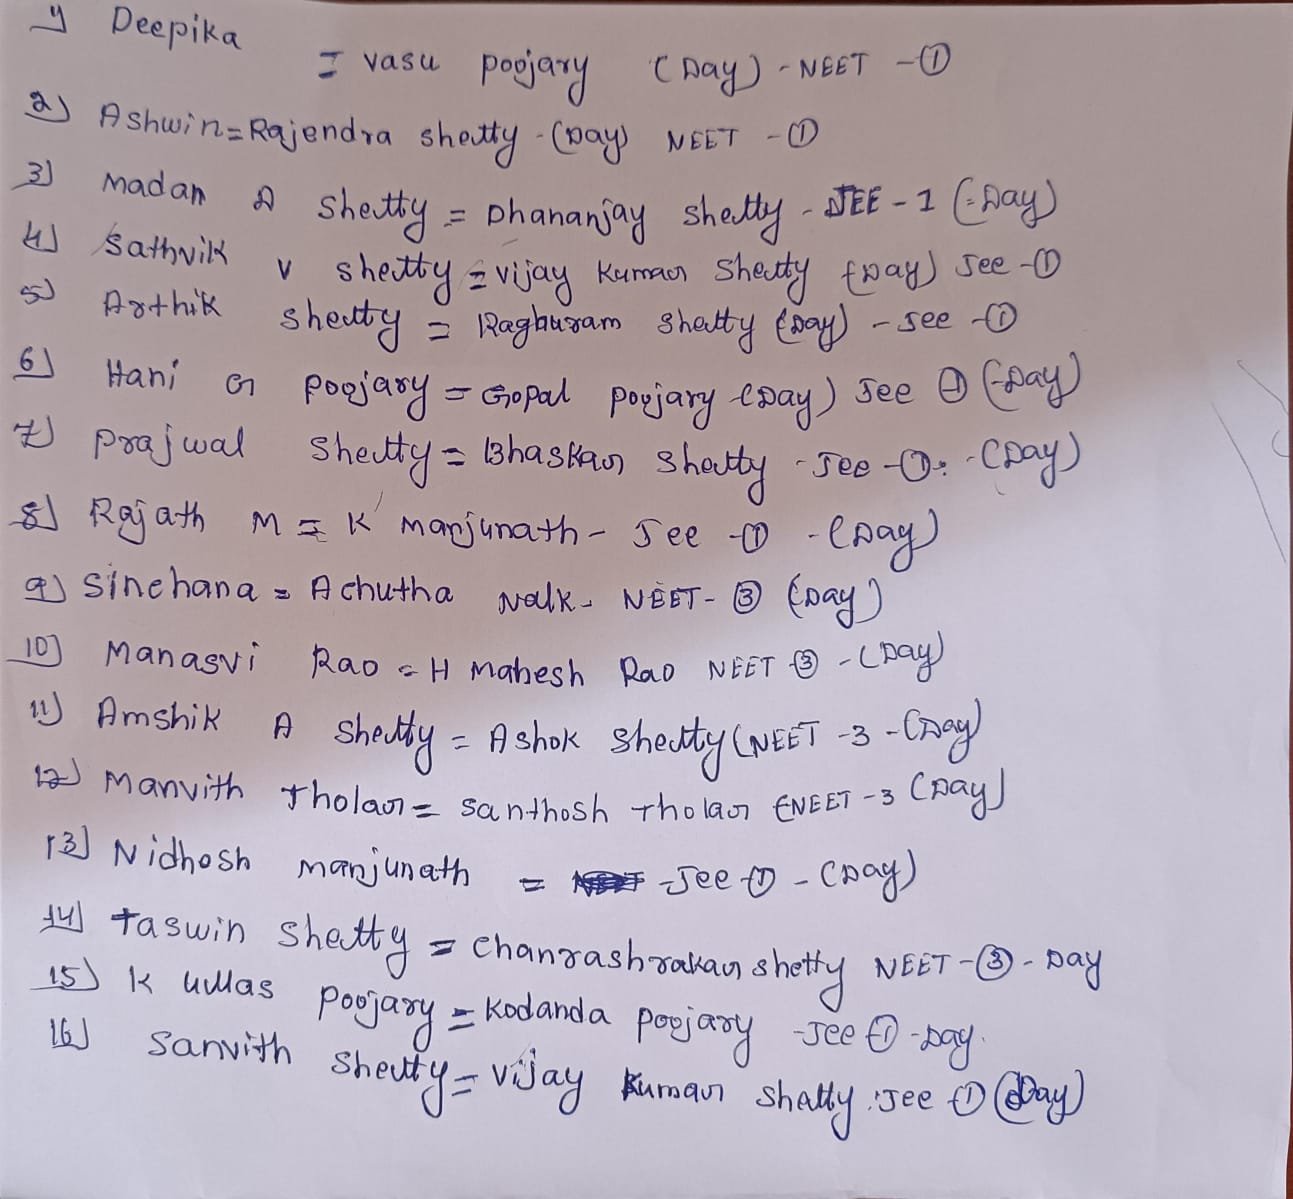 1) Deepika = Vasu poojary (Day) - NEET - ①
2) Ashwin = Rajendra shetty - (Day) NEET - ①
3) Madan D shetty = Dhananjay shetty - JEE - 1 (-Day)
4) Sathvik v shetty = vijay Kumar Shetty (Day) Jee - ①
5) Arthik shetty = Raghuram Shetty (Day) - Jee - ①
6) Hani G poojary = Gopal poojary (Day) Jee ① (-Day)
7) prajwal Shetty = Bhaskar Shetty - Jee - ①: - (Day)
8) Rajath M = K Manjunath - Jee - ① - (Day)
9) Sinchana = Achutha Naik - NEET - ③ (Day)
10) Manasvi Rao = H Mahesh Rao NEET - ③ - (Day)
11) Amshik A Shetty = Ashok Shetty (NEET - 3 - (Day)
12) Manvith Tholar = Santhosh Tholar (NEET - 3 (Day)
13) Nidhosh Manjunath = - Jee - ① - (Day)
14) Taswin Shetty = Chanrashrakar shetty NEET - ③ - Day
15) K Ullas Poojary = Kodanda poojary - Jee - ① - Day.
16) Sanvith Shetty = Vijay Kumar Shetty : Jee - ① (Day)